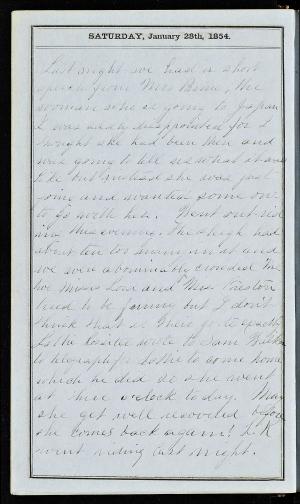 SATURDAY, January 28th, 1854.
Last night we had a short
speech from Miss the
woman who is going to Japan
I was sadly disappointed for I
thought she had been there and
was going to tell us what it was
like but instead she was just
going and wanted some one
to go with her. Went out rid
ing this evening. The sleigh had
about ten too many in it and
we were abominably crowded
Miss and Miss Preston
tried to be funny but I don't
think that is
Sallie wrote to Sam
to telegraph for Sallie to come home
which he did so she went
at three o'clock to day. May
she get well recovered before
she comes back again! L. K.
went riding last night.